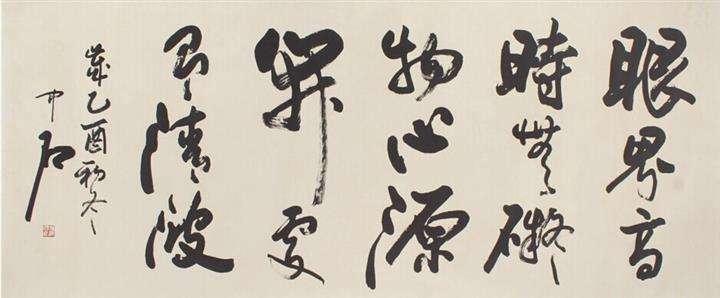 眼界高
時無礙
物心源
開處
即清波
歲乙酉初冬
中石